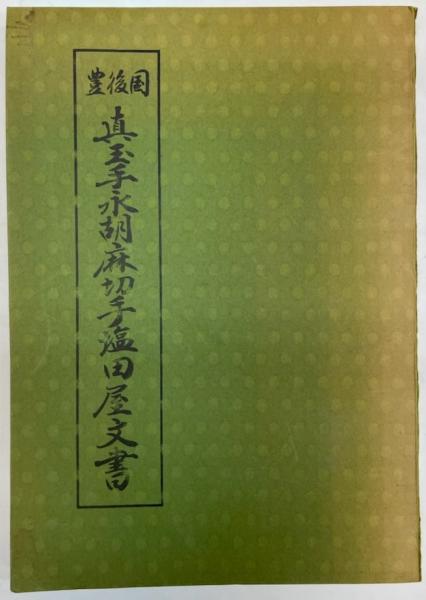 豊後国
真玉手永胡麻切手塩田屋文書